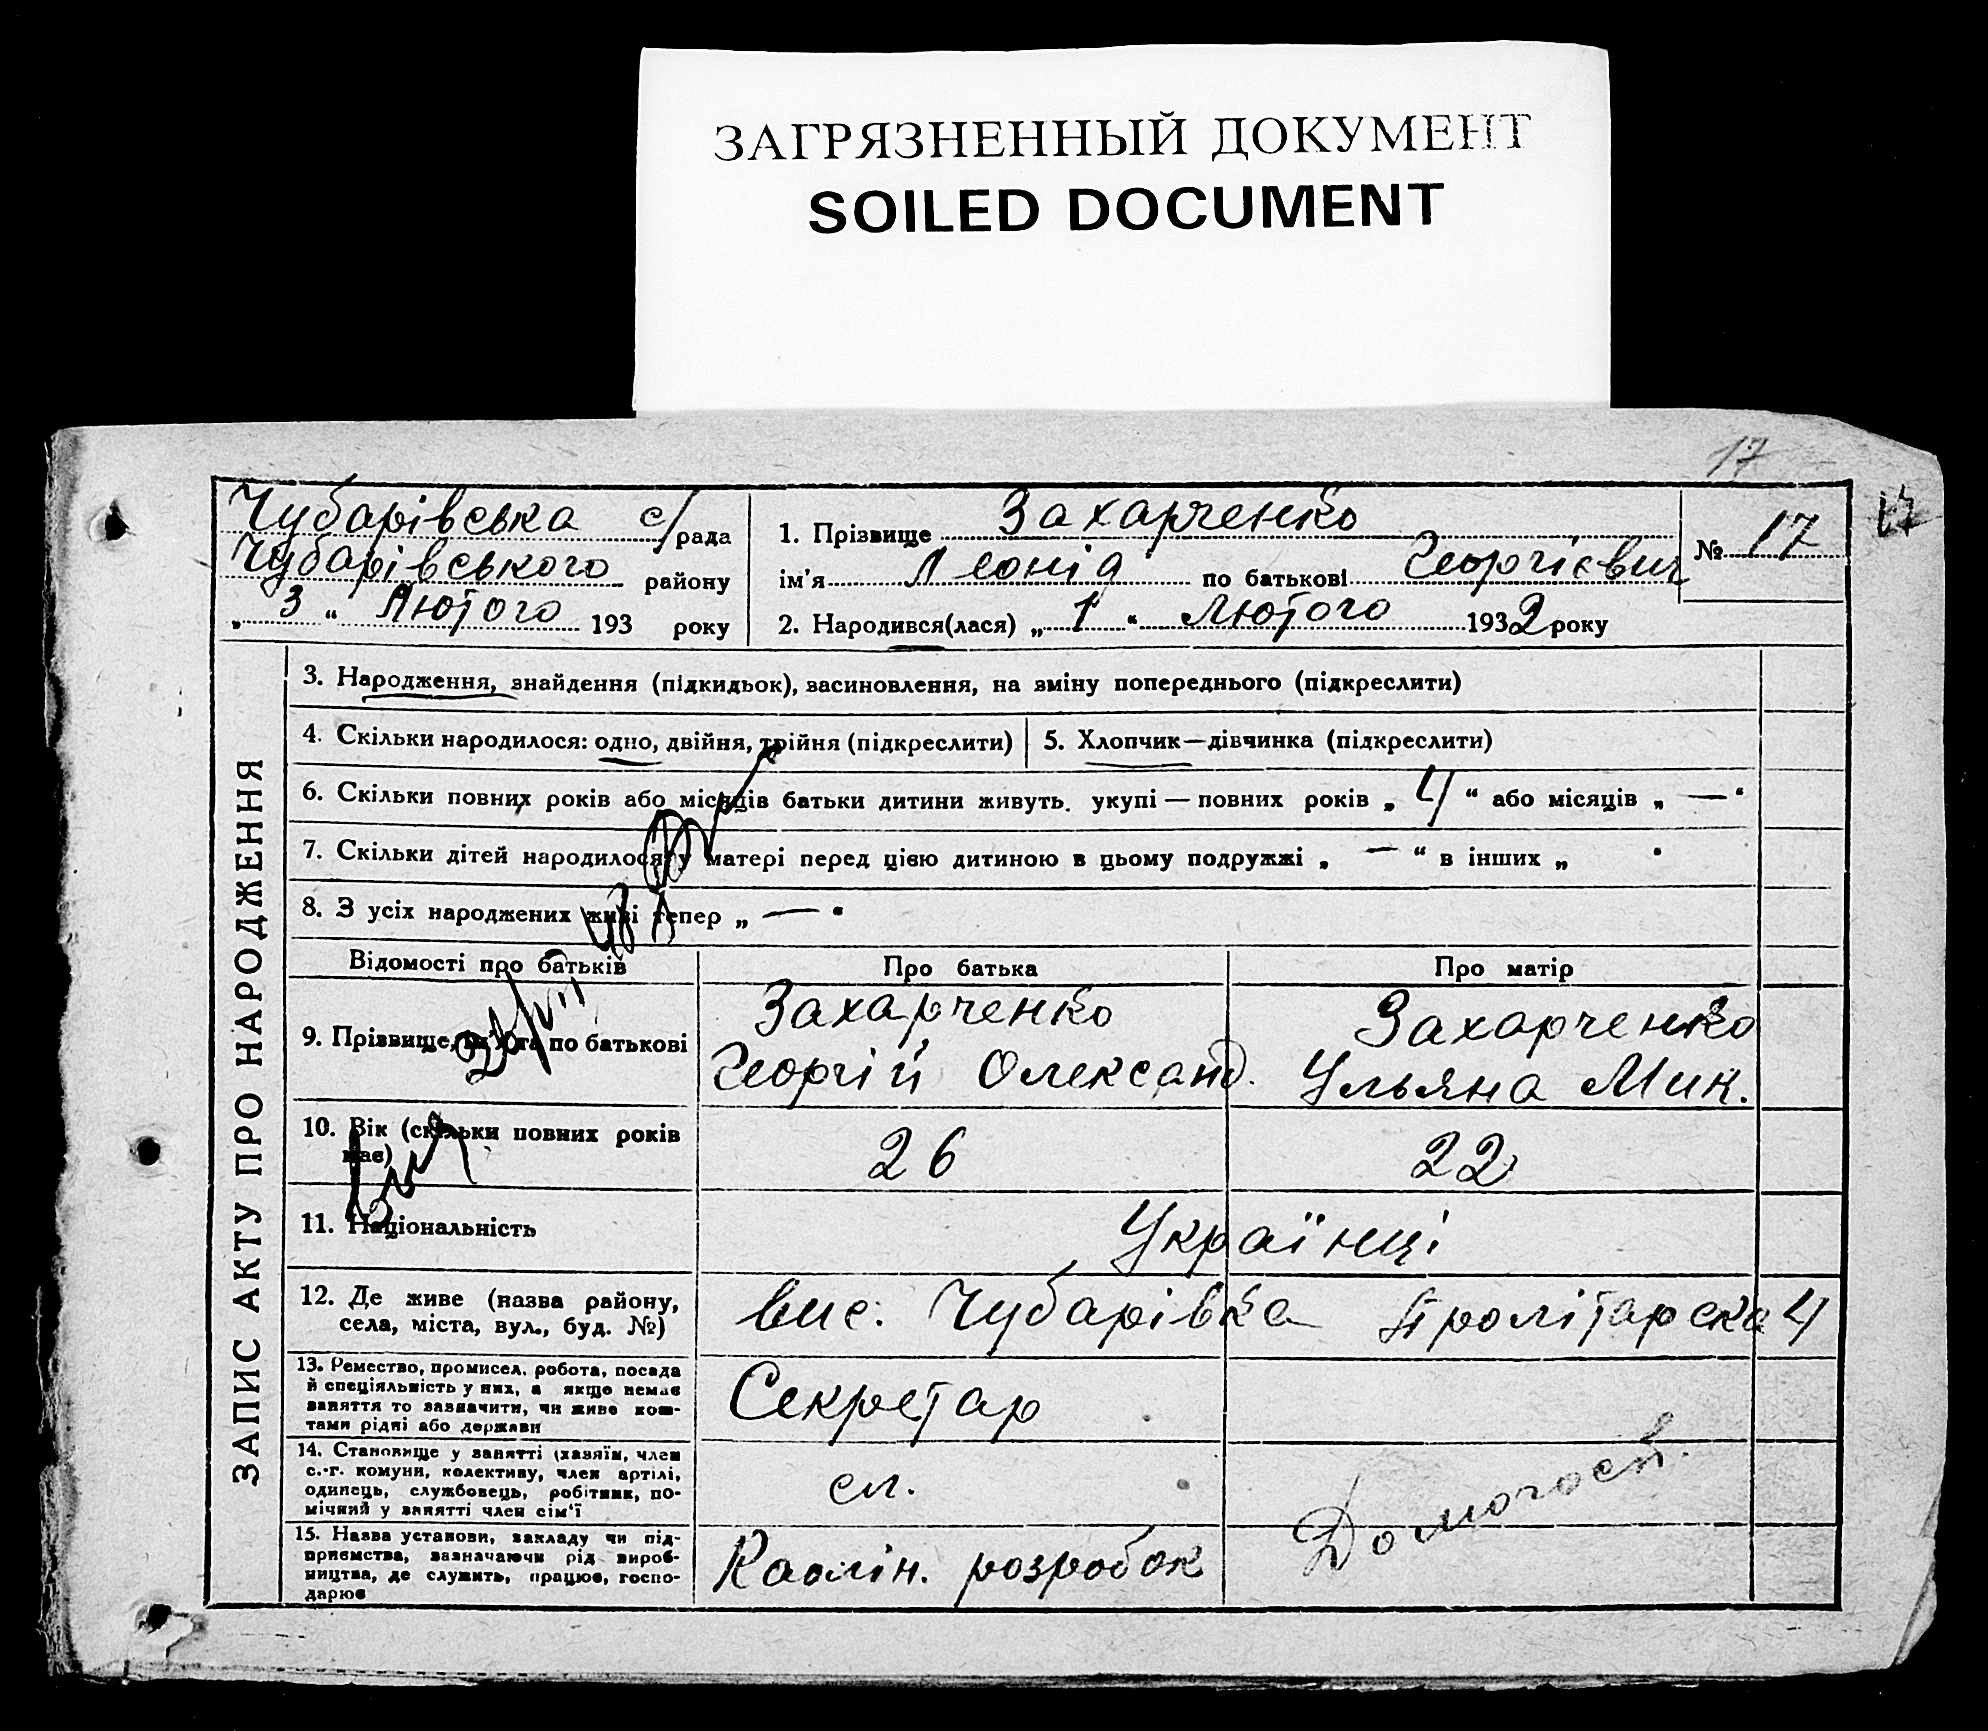 ЗАГРЯЗНЕННЫЙ ДОКУМЕНТ
SOILED DOCUMENT
17
17
Чубарівська с/рада
Чубарівського району
„ 3 “ Лютого 193 року
1. Прізвище Захарченко
ім'я Леонід по батькові Георгієвич
2. Народився(лася) „ 1 “ Лютого 1932 року
№ 17
ЗАПИС АКТУ ПРО НАРОДЖЕННЯ
3. Народження, знайдення (підкидьок), засиновлення, на зміну попереднього (підкреслити)
4. Скільки народилося: одно, двійня, трійня (підкреслити)
5. Хлопчик—дівчинка (підкреслити)
6. Скільки повних років або місяців батьки дитини живуть. укупі — повних років „ 4 “ або місяців „ — “
7. Скільки дітей народилося у матері перед цією дитиною в цьому подружжі „ — “ в інших „ “
8. З усіх народжених живі тепер „ — “
Відомості про батьків Про батька Про матір
9. Прізвище, ім'я та по батькові
Захарченко
Георгій Олександ.
Захарченко
Ульяна Мик.
10. Вік (скільки повних років
має)
26
22
11. Національність
Українці
12. Де живе (назва району,
села, міста, вул., буд. №)
вис. Чубарівка Пролітарска 4
13. Ремество, промисел, робота, посада
й спеціяльність у них, а якщо немає
заняття то зазначити, чи живе кош-
тами рідні або держави
Секретар
14. Становище у занятті (хазяїн, член
с.-г. комуни, колективу, член артілі,
одинець, службовець, робітник, по-
мічний у занятті член сім'ї
сл.
15. Назва установи, закладу чи під-
приємства, зазначаючи рід вироб-
ництва, де служить, працює, госпо-
дарює
Каолін. розробок
Домогосп.